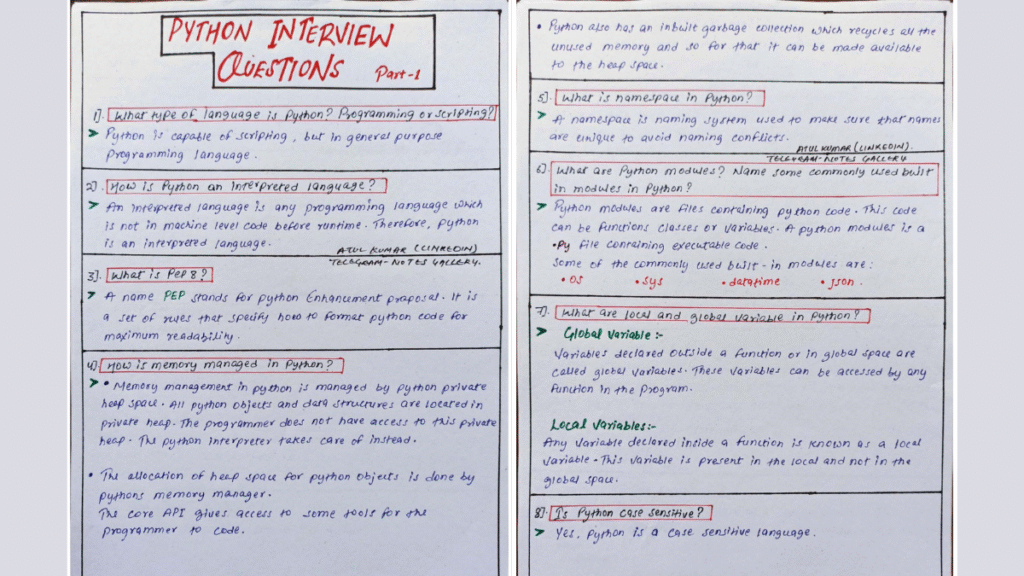 PYTHON INTERVIEW
QUESTIONS Part-1
1). What type of language is Python? Programming or scripting?
➤ Python is capable of scripting, but in general purpose
Programming language.
2). How is Python an interpreted language?
➤ An interpreted language is any programming language which
is not in machine level code before runtime. Therefore, Python
is an interpreted language.
ATUL KUMAR (LINKEDIN)
TELEGRAM-NOTES GALLERY.
3). What is Pep 8?
➤ A name PEP stands for python Enhancement proposal. It is
a set of rules that specify how to format python code for
maximum readability.
4). How is memory managed in Python?
➤ • Memory management in python is managed by python private
heap space. All python objects and data structures are located in
private heap. The programmer does not have access to this private
heap. The python interpreter takes care of instead.
• The allocation of heap space for python objects is done by
pythons memory manager.
The core API gives access to some tools for the
programmer to code.
• Python also has an inbuilt garbage collection which recycles all the
unused memory and so for that it can be made available
to the heap space.
5). What is namespace in Python?
➤ A namespace is naming system used to make sure that names
are unique to avoid naming conflicts.
ATUL KUMAR (LINKEDIN).
TELEGRAM-NOTES GALLERY
6). What are Python modules? Name some commonly used built
in modules in Python?
➤ Python modules are files containing python code. This code
can be functions classes or variables. A python modules is a
.Py file containing executable code.
Some of the commonly used built-in modules are:
• os • sys • datatime • json.
7). What are local and global variable in Python?
➤ Global Variable :-
Variables declared outside a function or in global space are
called global variables. These variables can be accessed by any
function in the program.
Local Variables:-
Any variable declared inside a function is known as a local
variable. This variable is present in the local and not in the
global space.
8). Is Python case sensitive?
➤ Yes, Python is a case sensitive language.